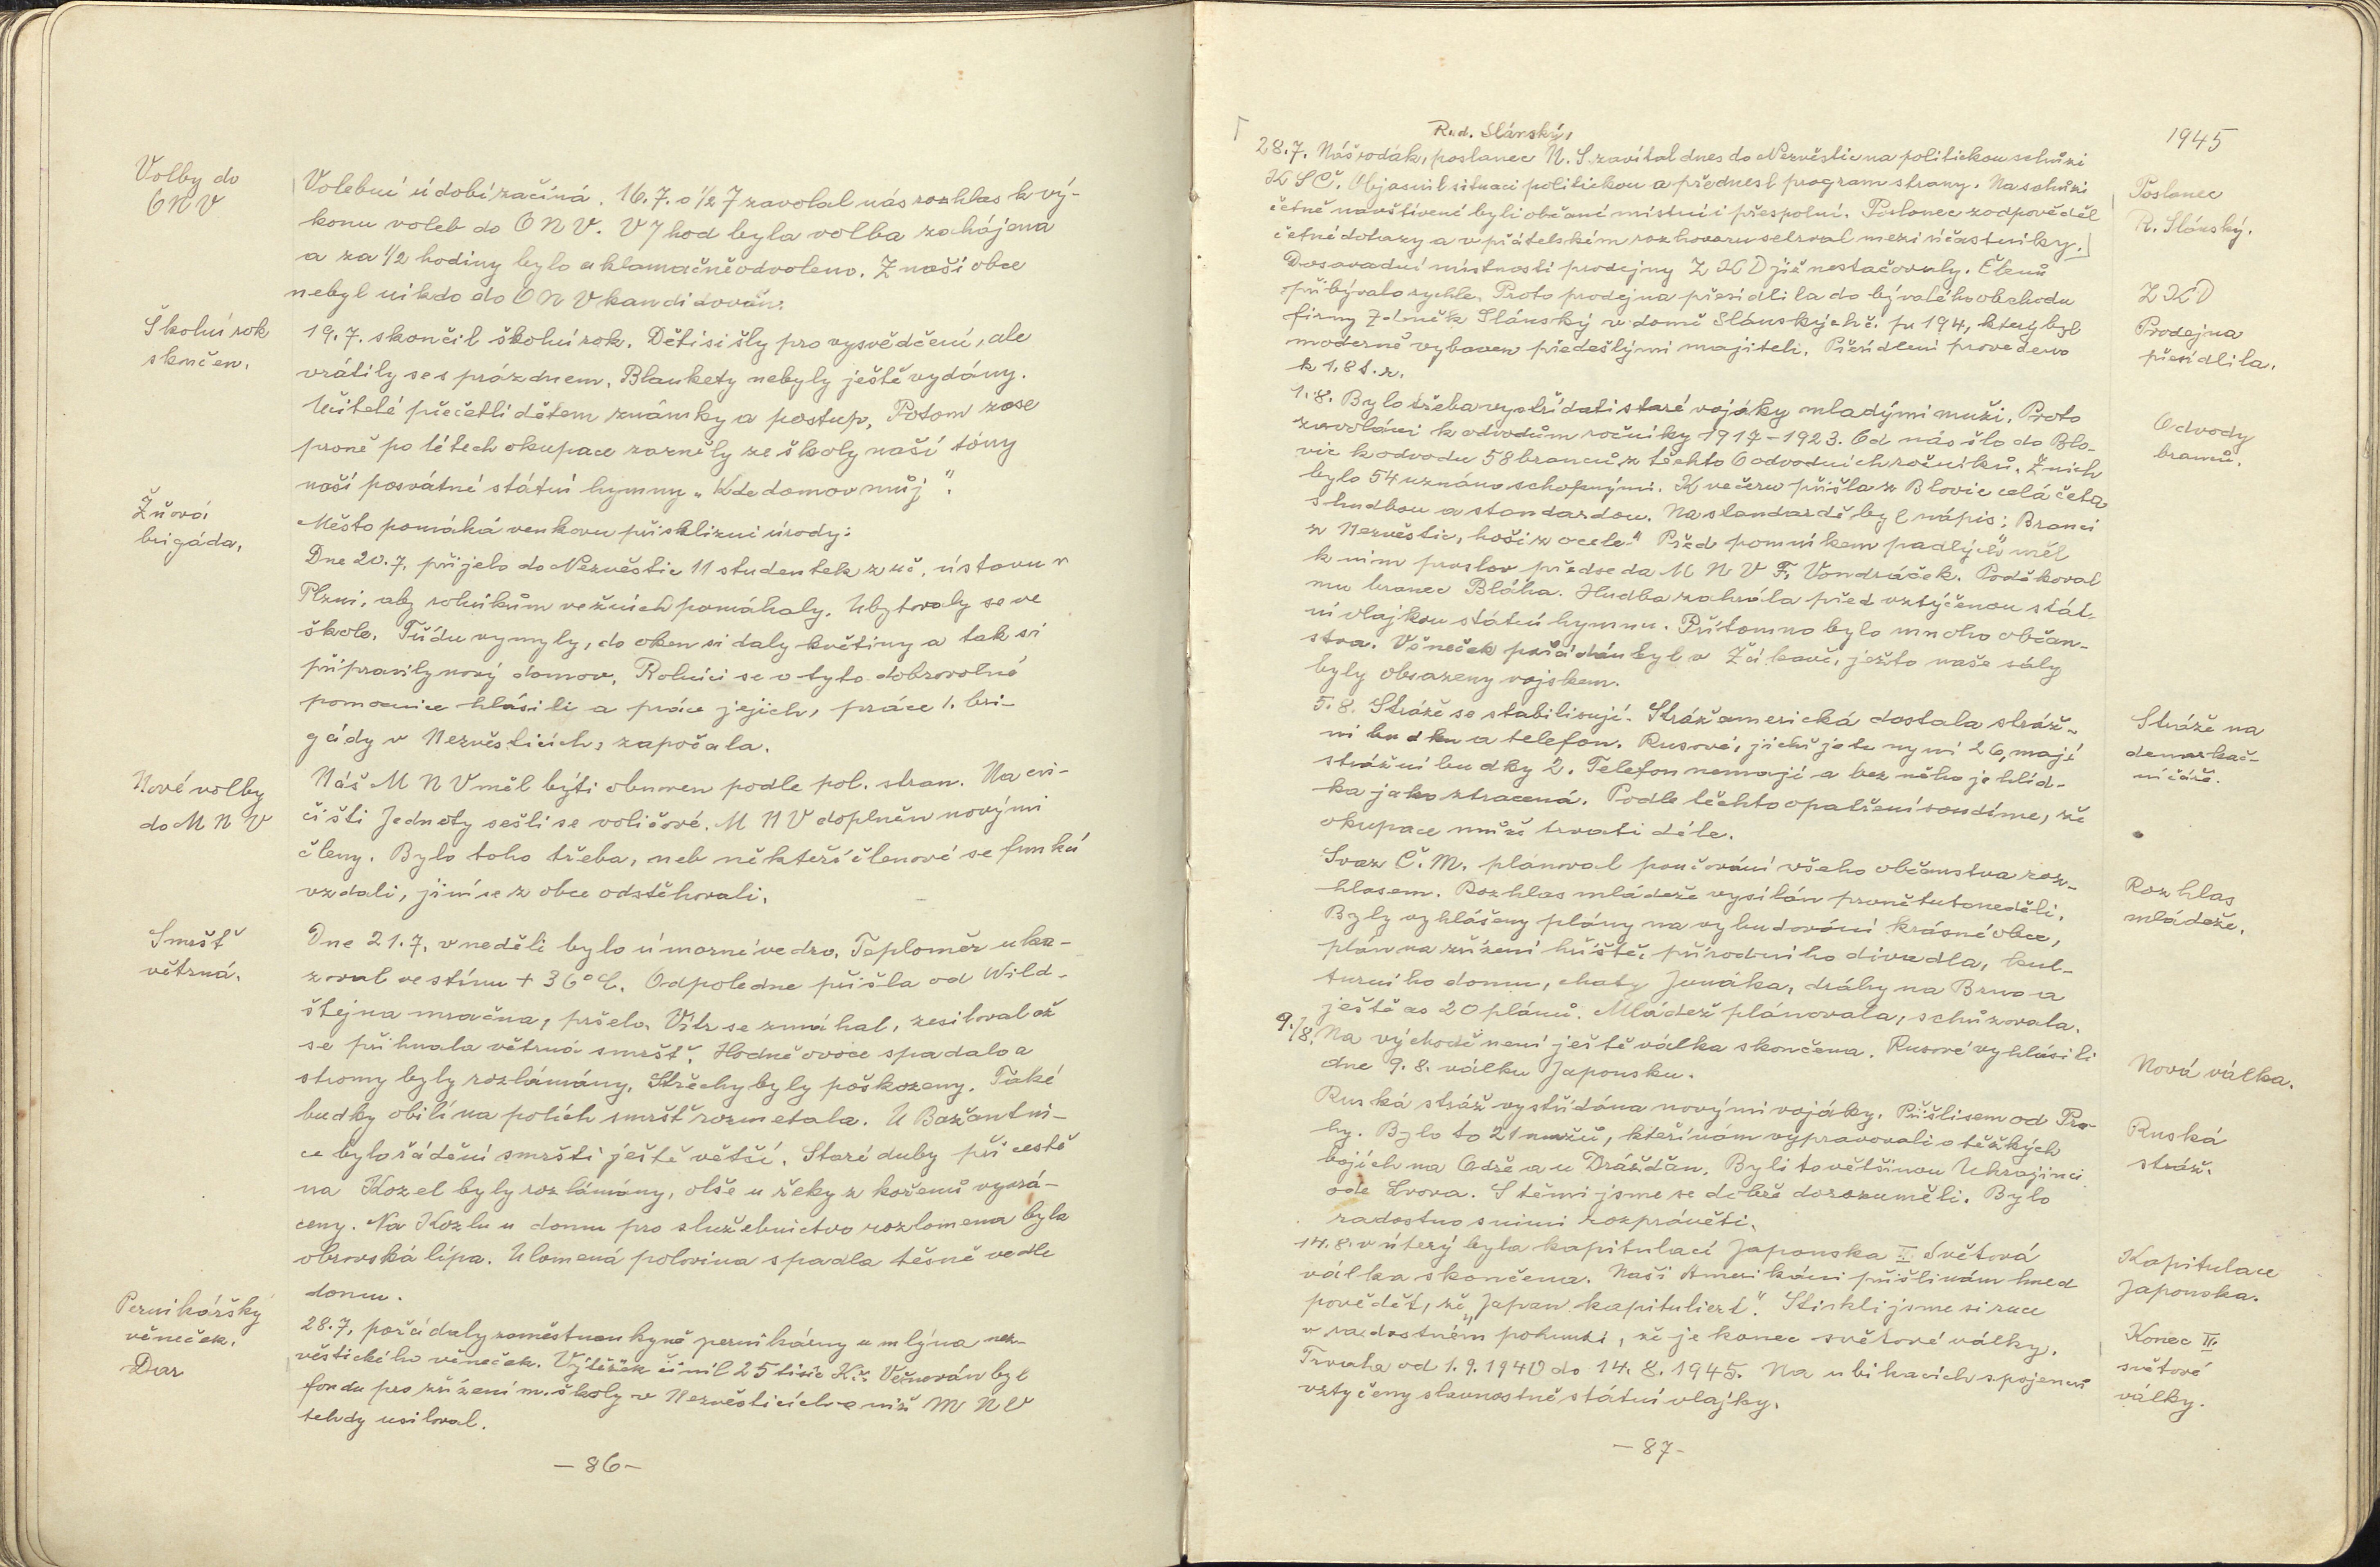 Volby do
ONV
Volební údobí začíná. 16.7. o ½ 7 zavolal nás rozhlas k vý-
konu voleb do ONV. V 7 hod byla volba zahájena
a za 1/2 hodiny bylo aklamačně odvoleno. Z naší obce
nebyl nikdo do ONV kandidován.
Školní rok
skončen.
19.7. skončil školní rok. Děti si šly pro vysvědčení, ale
vrátily se s prázdnem. Blankety nebyly ještě vydány.
Učitelé přečetli dětem známky a postup. Potom zase
prvně po létech okupace zazněly ze školy naší tóny
naší posvátné státní hymny „Kde domov můj".
Žňová
brigáda.
Město pomáhá venkovu při sklizni úrody:
Dne 20.7. přijelo do Nezvěstic 11 studentek z uč. ústavu v
Plzni, aby rolníkům ve žních pomáhaly. Ubytovaly se ve
škole. Třídu vymyly, do oken si daly květiny a tak si
připravily nový domov. Rolníci se o tyto dobrovolné
pomocnice hlásili a práce jejich, práce 1. bri-
gády v Nezvěsticích, započala.
Nové volby
do MNV
Náš MNV měl býti obnoven podle pol. stran. Na cvi-
čišti Jednoty sešli se voličové. MNV doplněn novými
členy. Bylo toho třeba, neb někteří členové se funkcí
vzdali, jiní se z obce odstěhovali.
Smršť
větrná.
Dne 21.7. v neděli bylo úmorné vedro. Teploměr uka-
zoval ve stínu + 36° C. Odpoledne přišla od Wild-
štejna mračna, pršelo. Vítr se zmáhal, zesiloval až
se přihnala větrná smršť. Hodně ovoce spadalo a
stromy byly rozlámány. Střechy byly poškozeny. Také
budky obilí na polích smršť rozmetala. U Bažantni-
ce bylo řádění smršti ještě větší. Staré duby při cestě
na Kozel byly rozlámány, olše u řeky z kořenů vyvrá-
ceny. Na Kozlu u domu pro služebnictvo rozlomena byla
obrovská lípa. Ulomená polovina spadla těsně vedle
domu.
Pernikářský
věneček.
Dar
28.7. pořádaly zaměstnankyně pernikárny u mlýna nez-
věstického věneček. Výtěžek činil 25 tisíc Kčs. Věnován byl
fondu pro zřízení m. školy v Nezvěsticích o niž MNV
tehdy usiloval.
-86-
1945
Rud. Slánský,
28.7. Náš rodák, poslanec R. S. zavítal dnes do Nezvěstic na politickou schůzi
KSČ. Objasnil situaci politickou a přednesl program strany. Na schůzi
četně navštívené byli občané místní i přespolní. Poslanec zodpověděl
četné dotazy a v přátelském rozhovoru setrval mezi účastníky.
Poslanec
R. Slánský.
Dosavadní místnosti prodejny ZKD již nestačovaly. Členů
přibývalo rychle. Proto prodejna přesídlila do bývalého obchodu
firmy Zdeněk Slánský v domě Slánských č. p. 194, který byl
moderně vybaven předešlými majiteli. Přesídlení provedeno
k 1.8 t.r.
ZKD
Prodejna
přesídlila.
1.8. Bylo třeba vystřídati staré vojáky mladými muži. Proto
zavoláni k odvodům ročníky 1917-1923. Od nás šlo do Blo-
vic k odvodu 58 branců z těchto 6 odvodních ročníků. Z nich
bylo 54 uznáno schopnými. K večeru přišla z Blovic celá četa
s hudbou a standardou. Na standardě byl nápis: Branci
z Nezvěstic, hoši z ocele." Před pomníkem padlých měl
k nim proslov předseda MNV F. Vondráček. Poděkoval
mu branec Bláha. Hudba zahrála před vztyčenou stát-
ní vlajkou státní hymnu. Přítomno bylo mnoho občan-
stva. Věneček pořádán byl v Žákavě, ježto naše sály
byly obsazeny vojskem.
Odvody
branců.
5.8. Stráže se stabilisují. Stráž americká dostala stráž-
ní budku a telefon. Rusové, jichž je tu nyní 26, mají
strážní budky 2. Telefon nemají a bez něho je hlíd-
ka jako ztracená. Podle těchto opatření soudíme, že
okupace může trvati déle.
Stráže na
demarkač-
ní čáře.
Svaz Č. M. plánoval poučování všeho občanstva roz-
hlasem. Rozhlas mládeže vysílán prvně tuto neděli.
Byly vyhlášeny plány na vybudování krásné obce,
plán na zřízení hřiště, přírodního divadla, kul-
turního domu, chaty Junáka, dráhy na Brno a
ještě as 20 plánů. Mládež plánovala, schůzovala.
Rozhlas
mládeže.
9./8. Na východě není ještě válka skončena. Rusové vyhlásili
dne 9.8. válku Japonsku.
Nová válka.
Ruská stráž vystřídána novými vojáky. Přišli sem od Pra-
hy. Bylo to 21 mužů, kteří nám vypravovali o těžkých
bojích na Odře a u Drážďan. Byli to většinou Ukrajinci
ode Lvova. S těmi jsme se dobře dorozuměli. Bylo
radostno s nimi rozprávěti.
Ruská
stráž.
14.8. v úterý byla kapitulací Japonska II. světová
válka skončena. Naši Američani přišli nám hned
povědět, že „Japan kapituliert". Stiskli jsme si ruce
v radostném pohnutí, že je konec světové války.
Trvala od 1.9.1940 do 14.8.1945. Na ubikacích spojenců
vztyčeny slavnostně státní vlajky.
Kapitulace
Japonska.
Konec II.
světové
války.
-87-